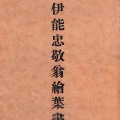 伊能忠敬翁繪葉書